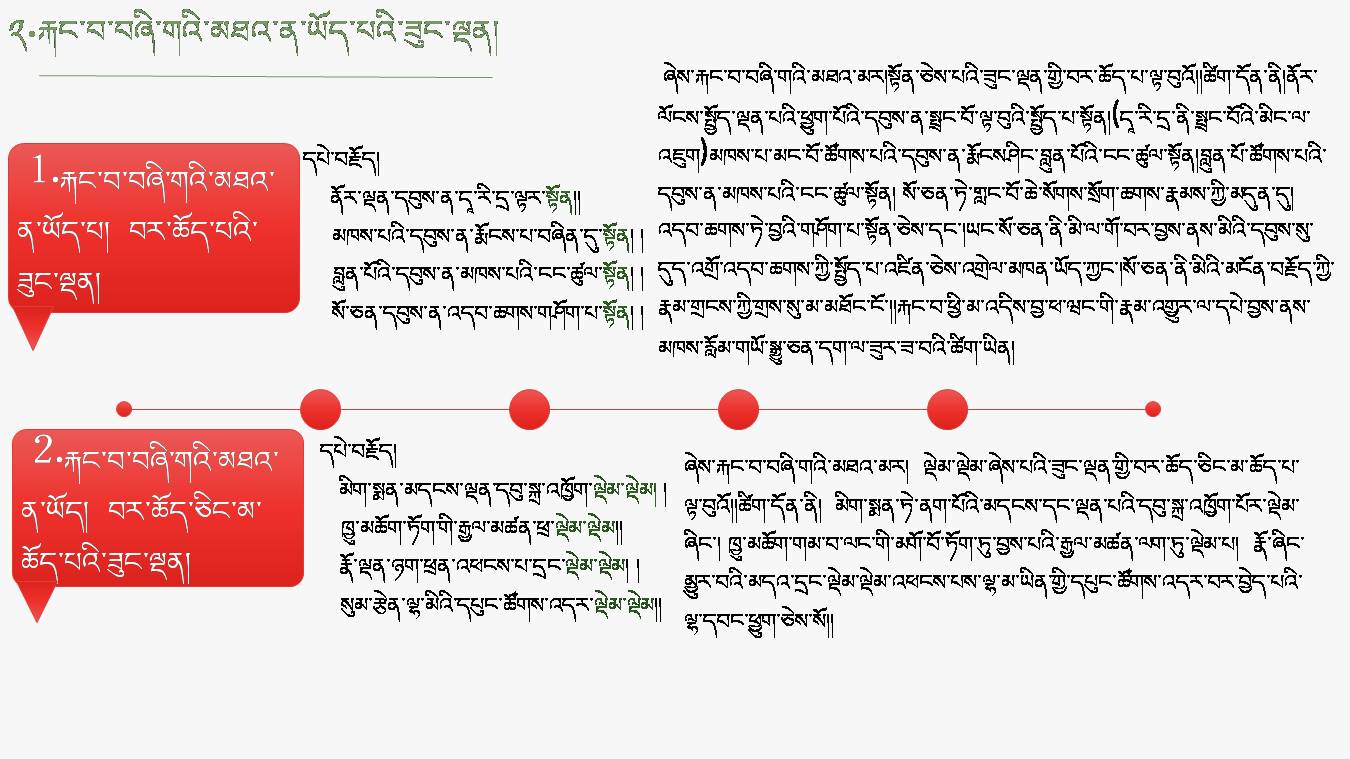 ༢.རྐང་བ་བཞི་གའི་མཐའ་ན་ཡོད་པའི་ཟུང་ལྡན།
1.རྐང་བ་བཞི་གའི་མཐའ་
ན་ཡོད་པ། བར་ཆོད་པའི་
ཟུང་ལྡན།
དཔེ་བརྗོད།
ནོར་ལྡན་དབུས་ན་དཱ་རི་དྲ་ལྟར་སྟོན༎
མཁས་པའི་དབུས་ན་རྨོངས་པ་བཞིན་དུ་སྟོན། །
བླུན་པོའི་དབུས་ན་མཁས་པའི་ངང་ཚུལ་སྟོན། །
སོ་ཅན་དབུས་ན་འདབ་ཆགས་གཤོག་པ་སྟོན། །
ཞེས་རྐང་བ་བཞི་གའི་མཐའ་མར།སྟོན་ཅེས་པའི་ཟུང་ལྡན་གྱི་བར་ཆོད་པ་ལྟ་བུའོ།།ཚིག་དོན་ནི།ནོར་
ལོངས་སྤྱོད་ལྡན་པའི་ཕྱུག་པོའི་དབུས་ན་སྤྲང་པོ་ལྟ་བུའི་སྤྱོད་པ་སྟོན།(དཱ་རི་དྲ་ནི་སྤྲང་པོའི་མིང་ལ་
འཇུག)མཁས་པ་མང་པོ་ཚོགས་པའི་དབུས་ན་རྨོངས་ཤིང་བླུན་པོའི་ངང་ཚུལ་སྟོན།བླུན་པོ་ཚོགས་པའི་
དབུས་ན་མཁས་པའི་ངང་ཚུལ་སྟོན། སོ་ཅན་ཏེ་གླང་པོ་ཆེ་སོགས་སྲོག་ཆགས་རྣམས་ཀྱི་མདུན་དུ།
འདབ་ཆགས་ཏེ་བྱའི་གཤོག་པ་སྟོན་ཅེས་དང་།ཡང་སོ་ཅན་ནི་མི་ལ་གོ་བར་བྱས་ནས་མིའི་དབུས་སུ་
དུད་འགྲོ་འདབ་ཆགས་ཀྱི་སྤྱོད་པ་འཛིན་ཅེས་འགྲེལ་མཁན་ཡོད་ཀྱང་།སོ་ཅན་ནི་མིའི་མངོན་བརྗོད་ཀྱི་
རྣམ་གྲངས་ཀྱི་གྲས་སུ་མ་མཐོང་ངོ་།།རྐང་བ་ཕྱི་མ་འདིས་བྱ་ཕ་ཝང་གི་རྣམ་འགྱུར་ལ་དཔེ་བྱས་ནས་
མཁས་རློམ་གཡོ་སྒྱུ་ཅན་དག་ལ་ཟུར་ཟ་བའི་ཚིག་ཡིན།
2.རྐང་བ་བཞི་གའི་མཐའ་
ན་ཡོད། བར་ཆོད་ཅིང་མ་
ཆོད་པའི་ཟུང་ལྡན།
དཔེ་བརྗོད།
མིག་སྨན་མདངས་ལྡན་དབུ་སྐྲ་འཁྱོག་ལྡེམ་ལྡེམ། །
ཁྱུ་མཆོག་ཏོག་གི་རྒྱལ་མཚན་ཕྲ་ལྡེམ་ལྡེམ༎
རྣོ་ལྡན་ཉག་ཕྲན་འཕངས་པ་དྲང་ལྡེམ་ལྡེམ། །
སུམ་རྩེན་ལྷ་མིའི་དཔུང་ཚོགས་འདར་ལྡེམ་ལྡེམ༎
ཞེས་རྐང་བ་བཞི་གའི་མཐའ་མར། ལྡེམ་ལྡེམ་ཞེས་པའི་ཟུང་ལྡན་གྱི་བར་ཆོད་ཅིང་མ་ཆོད་པ་
ལྟ་བུའོ།།ཚིག་དོན་ནི། མིག་སྨན་ཏེ་ནག་པོའི་མདངས་དང་ལྡན་པའི་དབུ་སྐྲ་འཁྱོག་པོར་ལྡེམ་
ཞིང་། ཁྱུ་མཆོག་གམ་བ་ལང་གི་མགོ་བོ་ཏོག་ཏུ་བྱས་པའི་རྒྱལ་མཚན་ལག་ཏུ་ལྡེམ་པ། རྣོ་ཞིང་
མྱུར་བའི་མདའ་དྲང་ལྡེམ་ལྡེམ་འཕངས་པས་ལྷ་མ་ཡིན་གྱི་དཔུང་ཚོགས་འདར་བར་བྱེད་པའི་
ལྷ་དབང་ཕྱུག་ཅེས་སོ༎